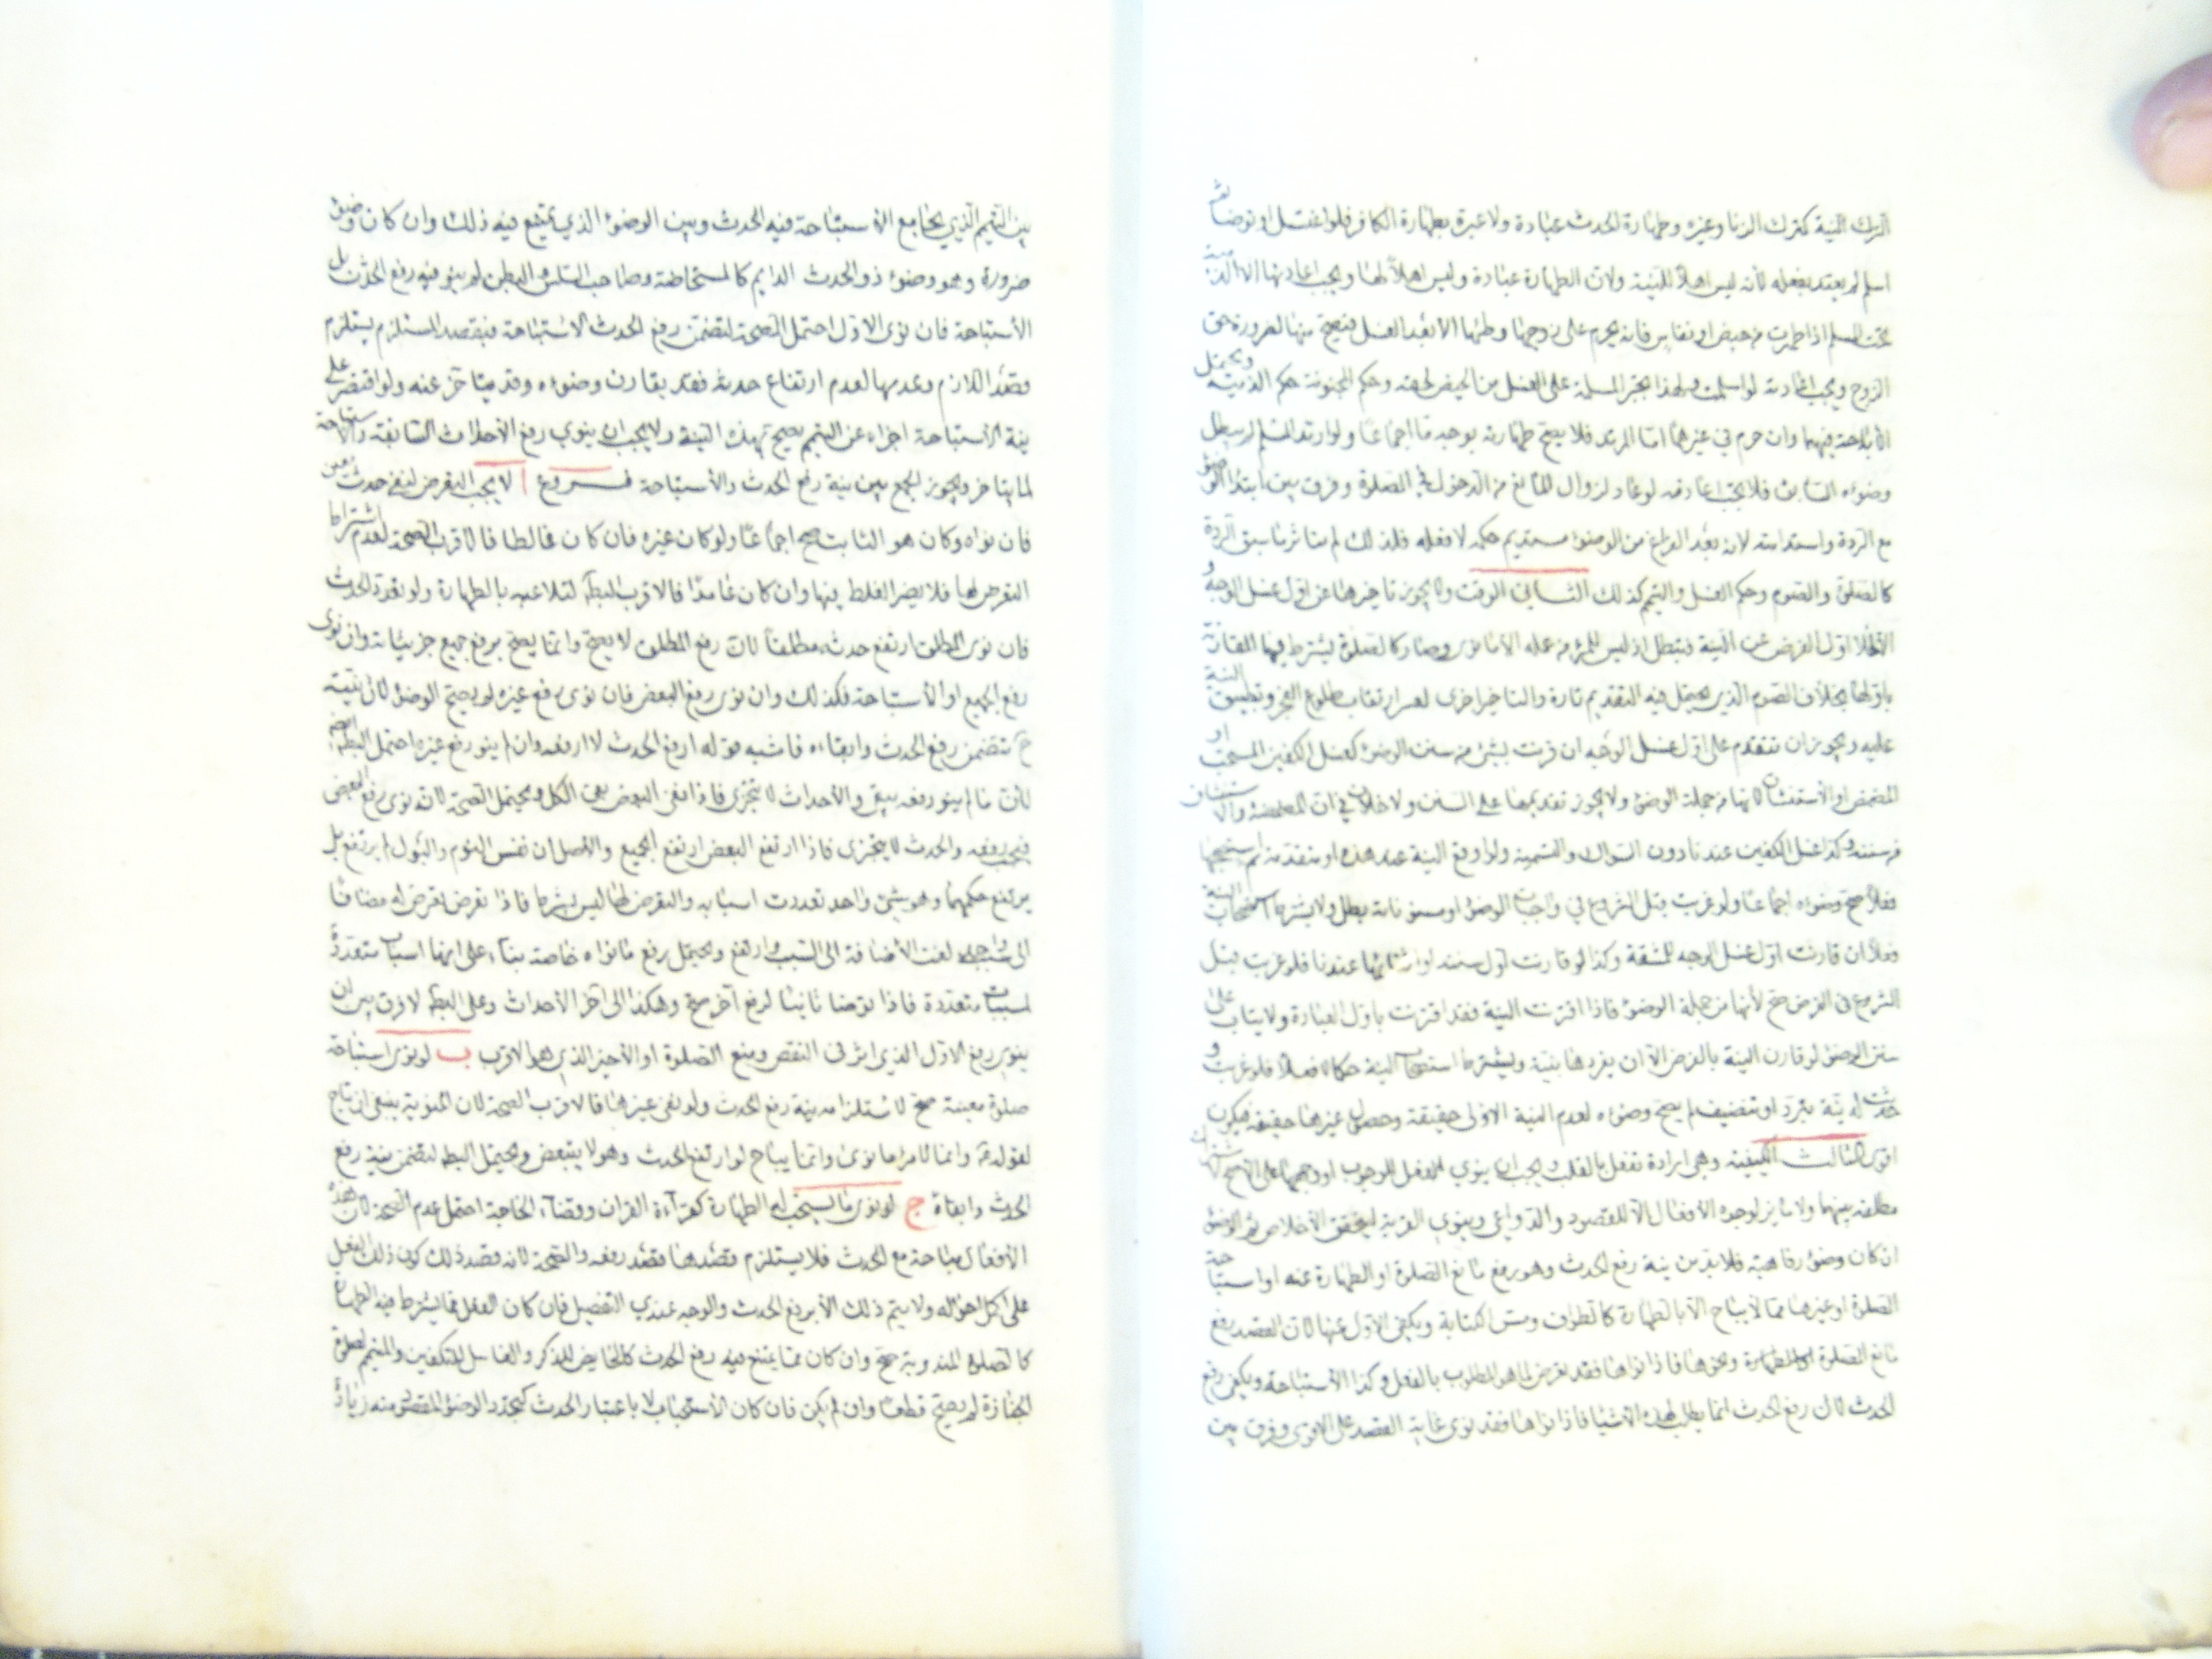 الترك النية كترك الزنا وغيره وطهارة الحدث عبادة ولا عبرة بطهارة الكافر فلو اغتسل او توضا ثم
اسلم لم يعتد بفعله لانه ليس اهلا للنية ولان الطهارة عبادة وليس اهلا لها ويجب اعادتها الا الذمية
تحت المسلم اذا طهرت من حيض او نفاس فانه يحرم على زوجها وطئها الا بعد الغسل فتصح منها لضرورة حق
الزوج ويجب اعادته لو اسلمت ولهذا يجبر المسلمة على الغسل من الحيض لحقه وحكم المجنونة حكم الذمية ويحتمل
الاباحة فيهما وان حرم في غيرهما اما المرتد فلا يصح طهارته بوجه ما اجماعا ولو ارتد المسلم لم يبطل
وضوءه السابق فلا يجب اعادته لو عاد لزوال المانع من الدخول في الصلوة وفرق بين ابتداء الوضوء
مع الردة واستدامته لانه بعد الفراغ من الوضوء مستديم حكمه لا فعله فلذلك لم يتاثر ما سبق الردة
كالصلوة والصوم وحكم الغسل والتيمم كذلك الثاني الوقت ولا يجوز تاخيرها عن اول غسل الوجه و
الا لخلا اول الفرض عن النية فيبطل اذ ليس للمرء من عمله الا ما نوى وصار كالصلوة يشترط فيها المقارنة
باولها بخلاف الصوم الذي يحتمل فيه التقديم تارة والتاخير اخرى لعسر ارتقاب طلوع الفجر وتطبيق النية
عليه ويجوز ان تتقدم على اول غسل الوجه ان قرنت بشئ من سنن الوضوء كغسل الكفين المستحب او
المضمضة او الاستنشاق لانها من جملة الوضوء ولا يجوز تقديمها على السنن ولا خلاف في ان المضمضة والاستنشاق
من سننه وكذا غسل الكفين عندنا دون السواك والتسمية ولو اوقع النية عند هذه او متقدمة ثم استصحبها
فعلا صح وضوءه اجماعا ولو عزبت قبل الشروع في واجبات الوضوء او مسنوناته بطل ولا يشترط استصحاب النية
فعلا ان قارنت اول غسل الوجه للمشقة وكذا لو قارنت اول سننه او اثنائها عندنا فلو عزبت قبل
الشروع في الفرض صح لأنها من جملة الوضوء فاذا اقترنت النية فقد اقترنت باول العبادة ولا يثاب على
سنن الوضوء لو قارن النية بالفرض الا ان يفردها بنية ويشترط استصحاب النية حكما لا فعلا فلو عزبت و
حدثت له نية تبرد او تنظيف لم يصح وضوءه لعدم النية الاولى حقيقة وحصول غيرها حقيقة فيكون
اقوى الثالث الكيفية وهي ارادة تفعل بالقلب ويجب ان ينوي الفعل للوجوب او وجههما على الاصح لاشتراك
مطلقه بينهما ولا مايز لوجوه الافعال الا المقصود والدواعي وينوي القربة ليتحقق الاخلاص ثم الوضوء
ان كان وضوء رفاهية فلا بد من نية رفع الحدث وهو رفع مانع الصلوة او الطهارة عنه او استباحة
الصلوة او غيرها مما لا يباح الا بالطهارة كالطواف ومس الكتابة ويكفي الاول عنها لان القصد رفع
مانع الصلوة او الطهارة ونحوها فاذا نواها فقد تعرض لما هو المطلوب بالفعل وكذا الاستباحة ويكفي رفع
الحدث لان رفع الحدث انما يطلب لهذه الاشيا فاذا نواها فقد نوى غاية القصد على الاقوى وفرق بين
بين التيمم الذي يجامع الاستباحة فيه الحدث وبين الوضوء الذي يمتنع فيه ذلك وان كان وضوء
ضرورة وهو وضوء ذو الحدث الدايم كالمستحاضة وصاحب السلس والبطن لم ينو فيه رفع الحدث بل
الأستباحة فان نوى الاول احتمل الصحة لتضمن رفع الحدث الاستباحة فبقصد المستلزم يستلزم
وقصد اللازم وعدمها لعدم ارتفاع حدثه فقد يقارن وضوءه وقد يتاخر عنه ولو اقتصر على
نية الاستباحة اجزاءه عن التيمم يصح بهذه النية ولا يجب ان ينوي رفع الأحداث السابقة والاستباحة
لما يتاخر ويجوز الجمع بين نية رفع الحدث والأستباحة فــروع ا لا يجب التعرض لنفي حدث معين
فان نواه وكان هو الثابت صح اجماعا ولو كان غيره فان كان غالطا فالاقرب الصحة لعدم اشتراط
التعرض لها فلا يضر الغلط فيها وان كان عامدا فالاقرب البطلان لتلاعبه بالطهارة ولو تعدد الحدث
فان نوى المطلق ارتفع حدثه مطلقا لان رفع المطلق لا يصح وانما يصح برفع جميع جزئياته وان نوى
رفع الجميع او الأستباحة فكذلك وان نوى رفع البعض فان نوى لا رفع غيره لم يصح الوضوء لان نيته
ح تتضمن رفع الحدث وابقاءه فاشبه قوله ارفع الحدث لا ارفعه وان لم ينو رفع غيره احتمل البطلان
لأن ما لم ينو رفعه يبقى والأحداث لا تتجزى فاذا بقى البعض بقى الكل ويحتمل الصحة لانه نوى رفع البعض
فيجب رفعه والحدث لا يتجزى فاذا ارتفع البعض ارتفع الجميع والأصل ان نفس النوم والبول لم يرتفع بل
يرتفع حكمهما وهو شئ واحد تعددت اسبابه والتعرض لها ليس بشرط فاذا تعرض تعرض له مضافا
الى سبب واحد لغت الأضافة الى السبب وارتفع ويحتمل رفع ما نواه خاصة بناء على انها اسباب متعددة
لمسببات متعددة فاذا توضا ثانيا لرفع آخر صح وهكذا الى آخر الأحداث وعلى البطلان لا فرق بين ان
ينوى رفع الاول الذي اثر في النقض ومنع الصلوة او الأخير الذي هو الاقرب ب لو نوى استباحة
صلوة معينة صح لاستلزامه نية رفع الحدث ولو نفى غيرها فالاقرب الصحة لان المنوية ينبغي ان تباح
لقوله ع وانما لامرء ما نوى وانما يباح لو ارتفع الحدث وهو لا يتبعض ويحتمل البطلان لتضمن نية رفع
الحدث وابقاءه ج لو نوى ما يستحب له الطهارة كقراءة القران وقضاء الحاجة احتمل عدم الصحة لان هذه
الأفعال مباحة مع الحدث فلا يستلزم قصدها قصد رفعه والصحة لانه قصد ذلك كون ذلك الفعل
على اكمل احواله ولا يتم ذلك الا برفع الحدث والوجه عندي التفصيل فان كان الفعل مما يشترط فيه الطهارة
كالصلوة المندوبة صح وان كان مما يمتنع فيه رفع الحدث كالحايض للذكر والغاسل للتكفين والمتيمم لصلوة
الجنازة لم يصح قطعا وان لم يكن فان كان الأستحباب لا باعتبار الحدث كتجدد الوضوء المقصود منه زيادة